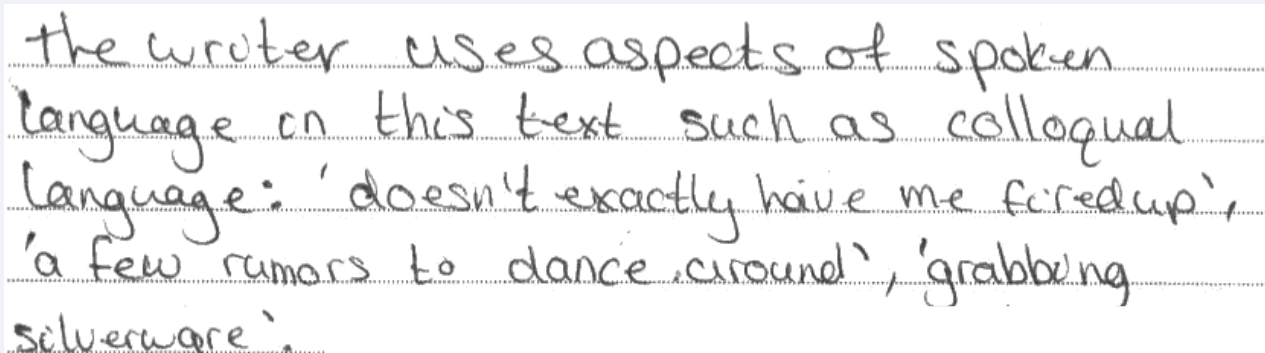 the writer uses aspects of spoken
language in this text such as colloqual
language: 'doesn't exactly have me fired up',
'a few rumors to dance around', 'grabbing
silverware'.